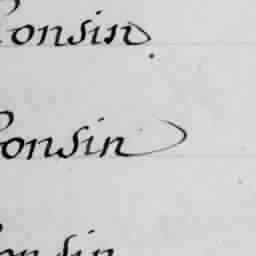 Consin
Consin
Consin